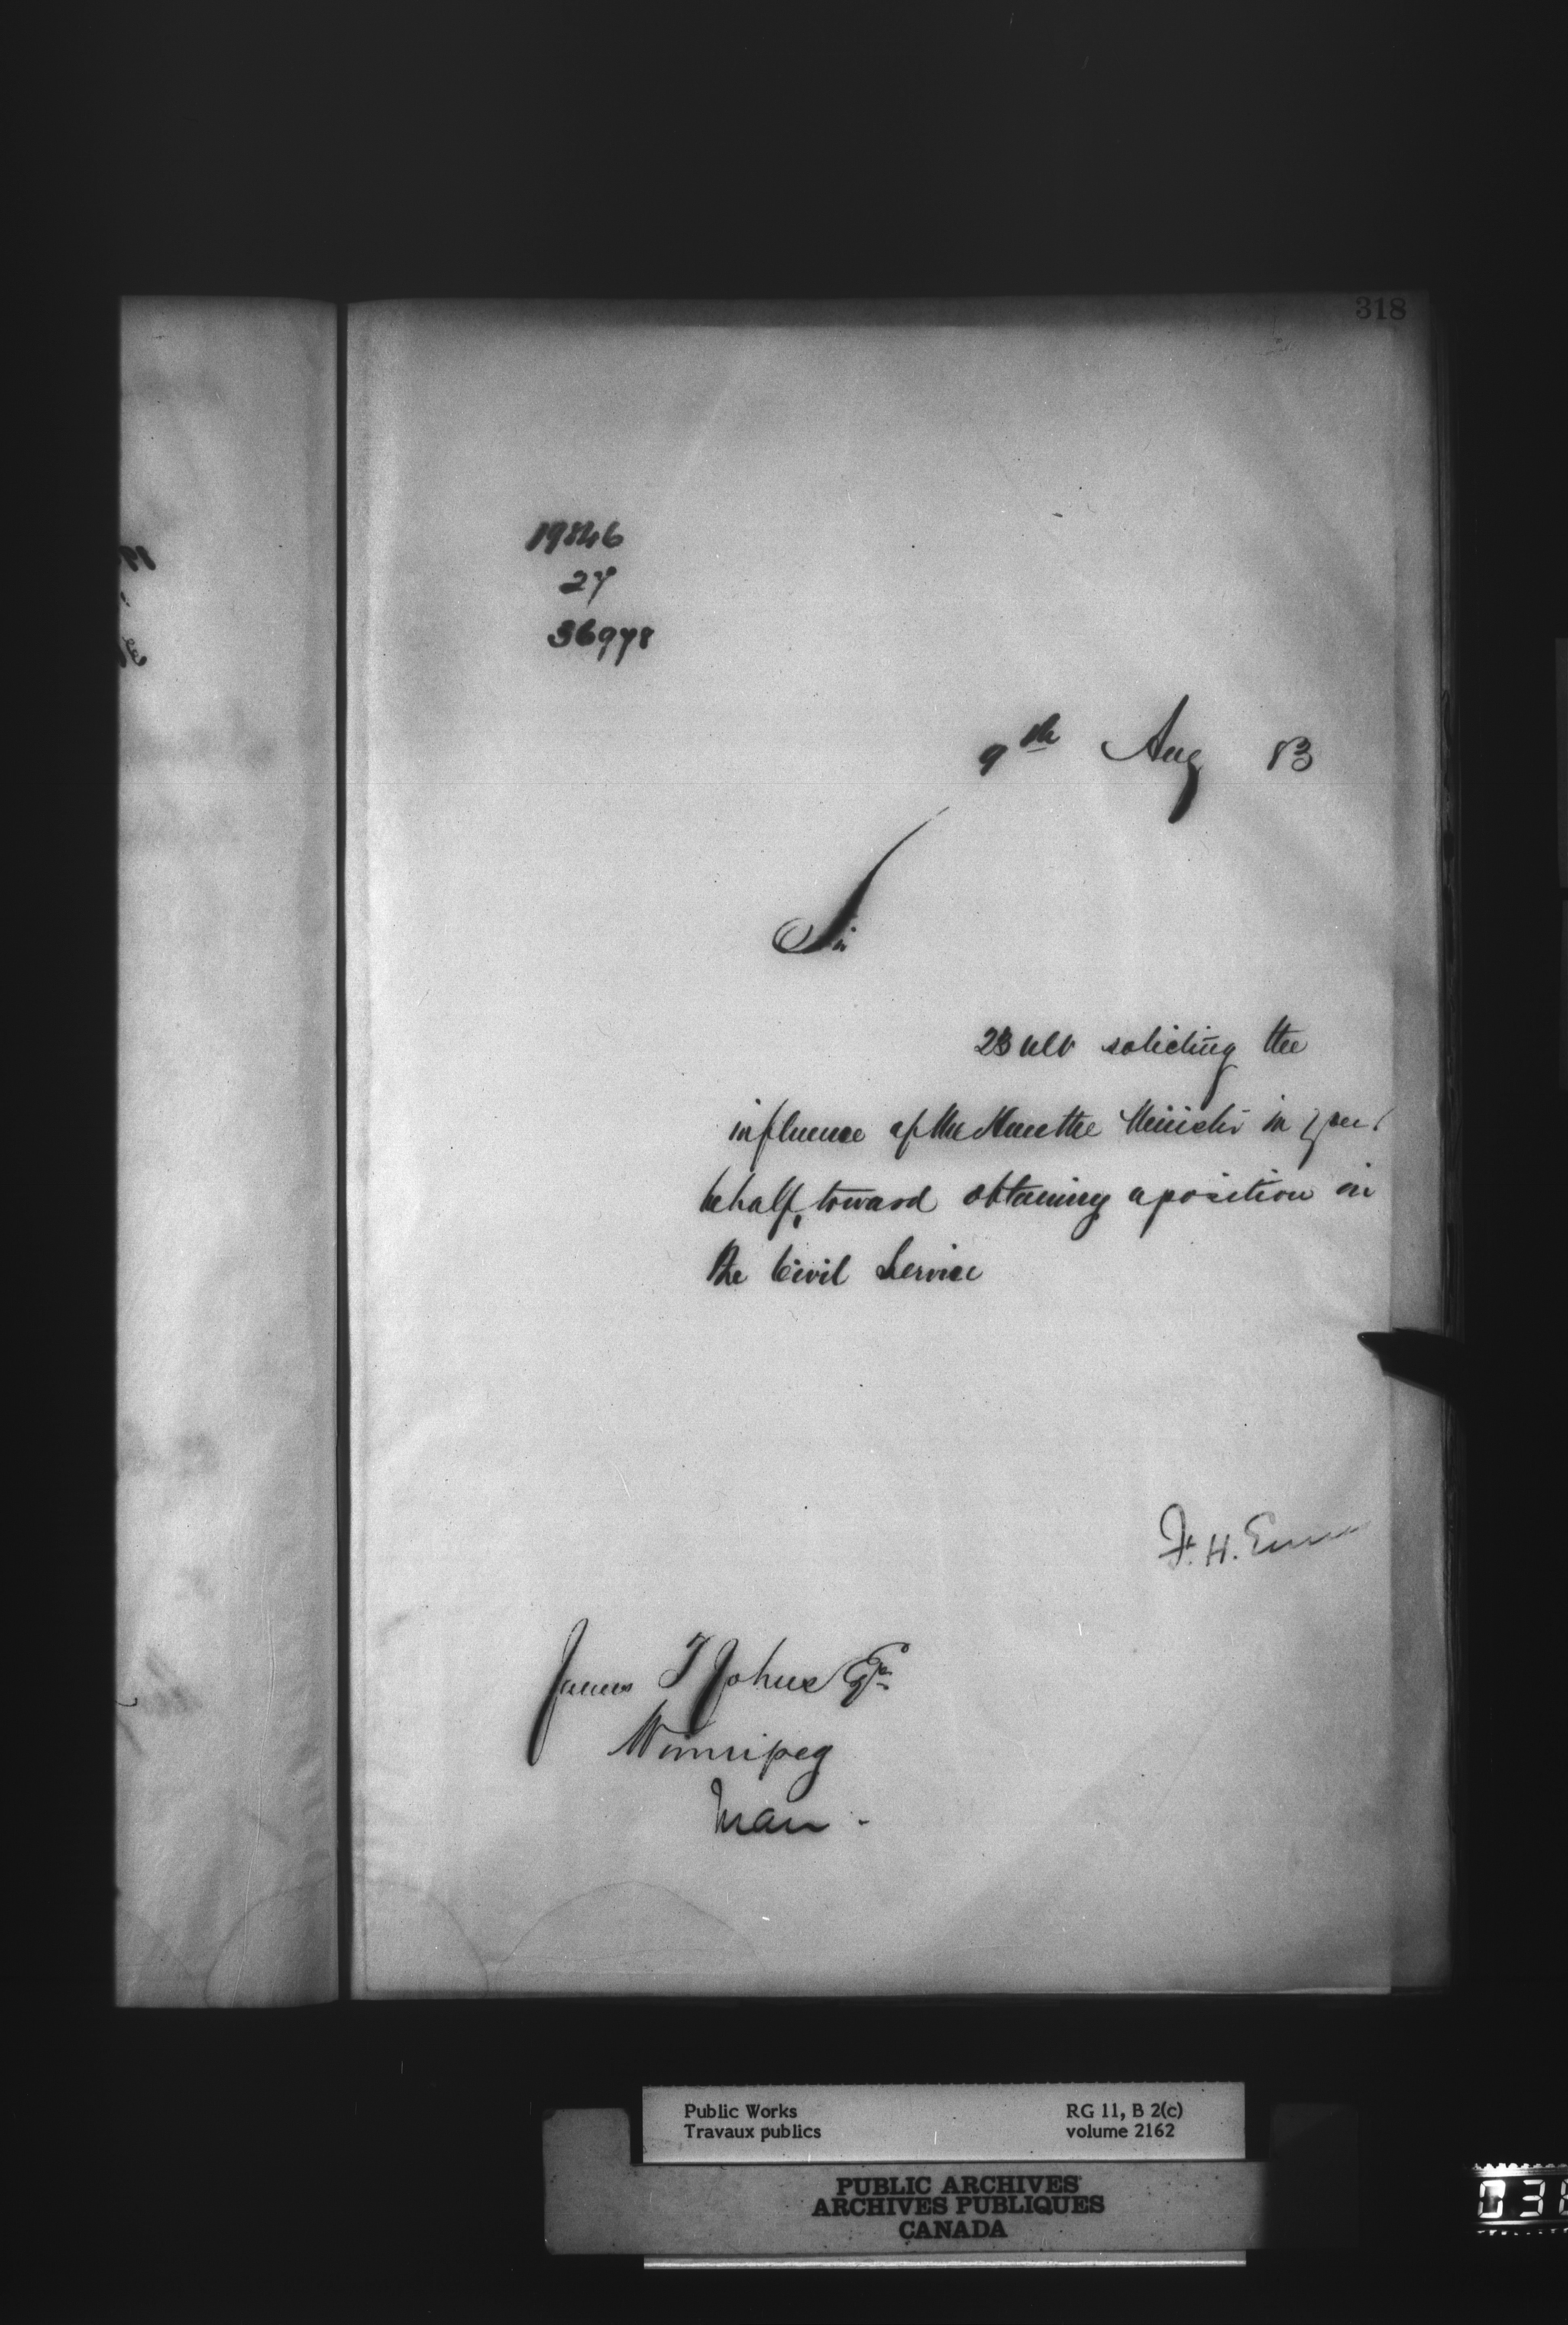 318
19846
27
36978
9th Aug 83
Sir
23 ulto soliciting the
influence of the Hon the Minister in your
behalf, toward obtaining a position in
the Civil Service
F. H. Ennis
James T Johns Esq
Winnipeg
Man -
Public Works
Travaux publics
RG 11, B 2(c)
volume 2162
PUBLIC ARCHIVES
ARCHIVES PUBLIQUES
CANADA